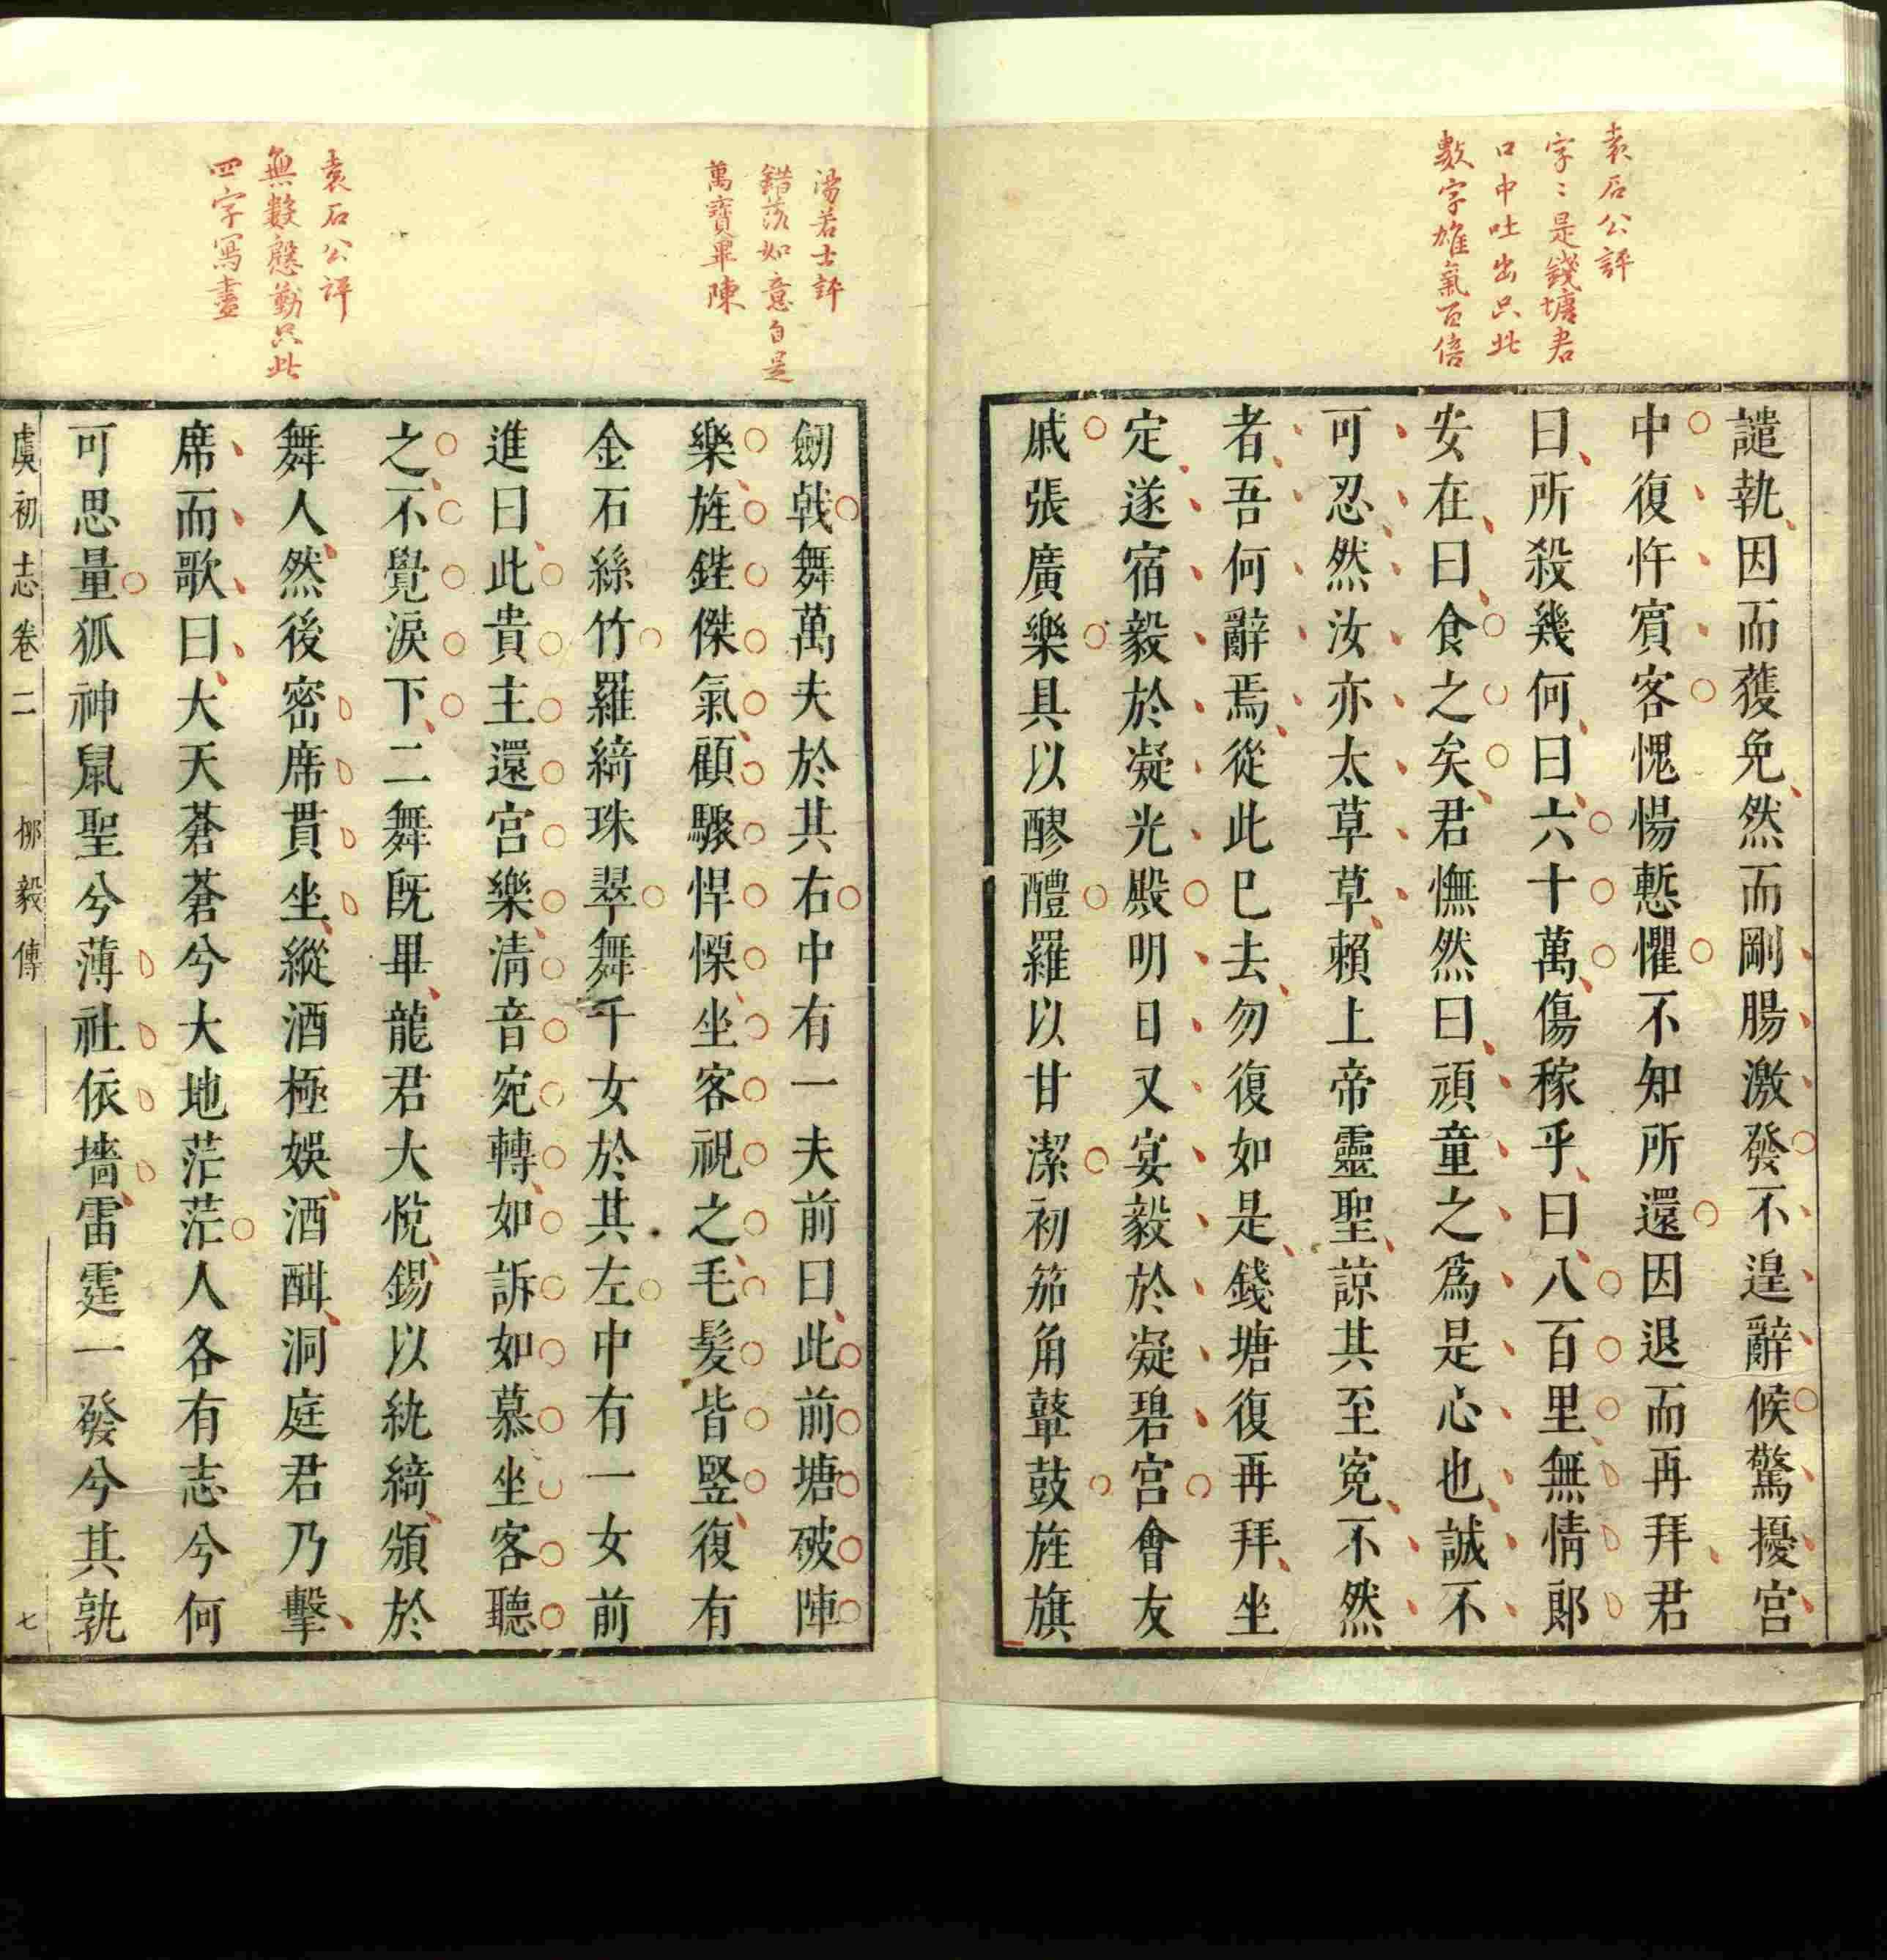 袁石公評
字〻是錢塘君
口中吐出只此
數字雄氣百倍
譴執因而獲免然而剛腸激發不遑辭候驚擾宮
中復忤賓客愧惕慙懼不知所還因退而再拜君
曰所殺幾何曰六十萬傷稼乎曰八百里無情郎
安在曰食之矣君憮然曰頑童之爲是心也誠不
可忍然汝亦太草草賴上帝靈聖諒其至寃不然
者吾何辭焉從此已去勿復如是錢塘復再拜坐
定遂宿毅於凝光殿明日又宴毅於凝碧宮會友
戚張廣樂具以醪醴羅以甘潔初笳角鼙鼓旌旗
湯若士評
錯落如意自是
萬寶畢陳
袁石公評
無數慇勤只此
四字寫盡
劒戟舞萬夫於其右中有一夫前曰此前塘破陣
樂旌鉟傑氣顧驟悍慄坐客視之毛髮皆竪復有
金石絲竹羅綺珠翠舞千女於其左中有一女前
進曰此貴主還宮樂清音宛轉如訴如慕坐客聽
之不覺淚下二舞旣畢龍君大悅錫以紈綺頒於
舞人然後密席貫坐縱酒極娛酒酣洞庭君乃擊
席而歌曰大天蒼蒼兮大地茫茫人各有志兮何
可思量狐神鼠聖兮薄社依墻雷霆一發兮其孰
虞初志卷二 柳毅傳 七